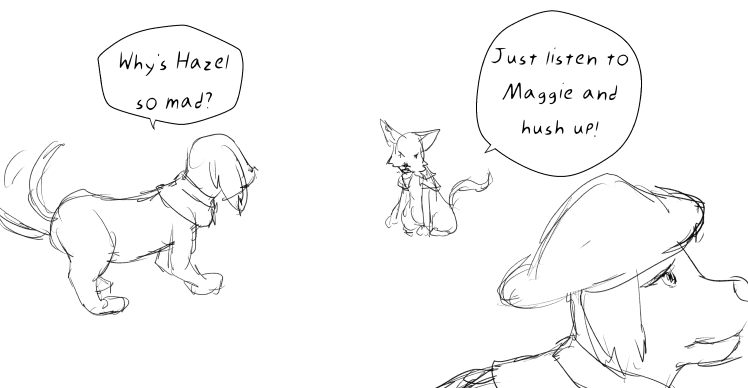 Why's Hazel
so mad?
Just listen to
Maggie and
hush up!